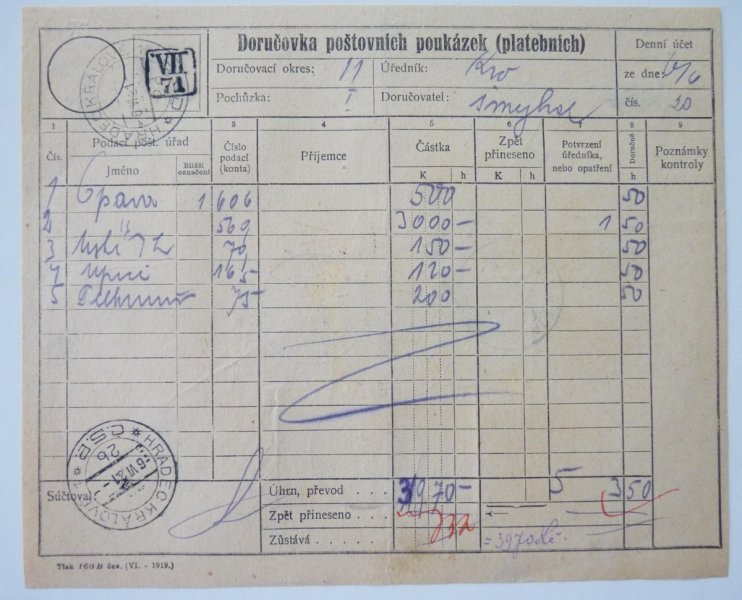 Doručovka poštovních poukázek (platebních)
Denní účet
Doručovací okres: 11
Úředník:
ze dne: 6/6
Pochůzka: I
Doručovatel:
čís. 20
VII
71
HRADEC KRÁLOVÉ
1 2 3 4 5 6 7 8 9
Čís.
Podací pošt. úřad
Jméno
Bližší označení
Číslo podací (konta)
Příjemce
Částka
K h
Zpět přineseno
K h
Potvrzení úředníka, nebo opatření
Doručné
h
Poznámky kontroly
1 Opava 1 606 500 50
2 " 569 3000 — 1 50
3 70 150 — 50
4 Úpice 165 120 — 50
5 75 200 50
HRADEC KRÁLOVÉ 1
Č.S.P.
2b
Súčtoval:
Úhrn, převod . . . . 3970 — 5 3 50
Zpět přineseno . . .
Zůstává . . . . . . . = 3970
Tisk 160 B čes. (VI. - 1919.)